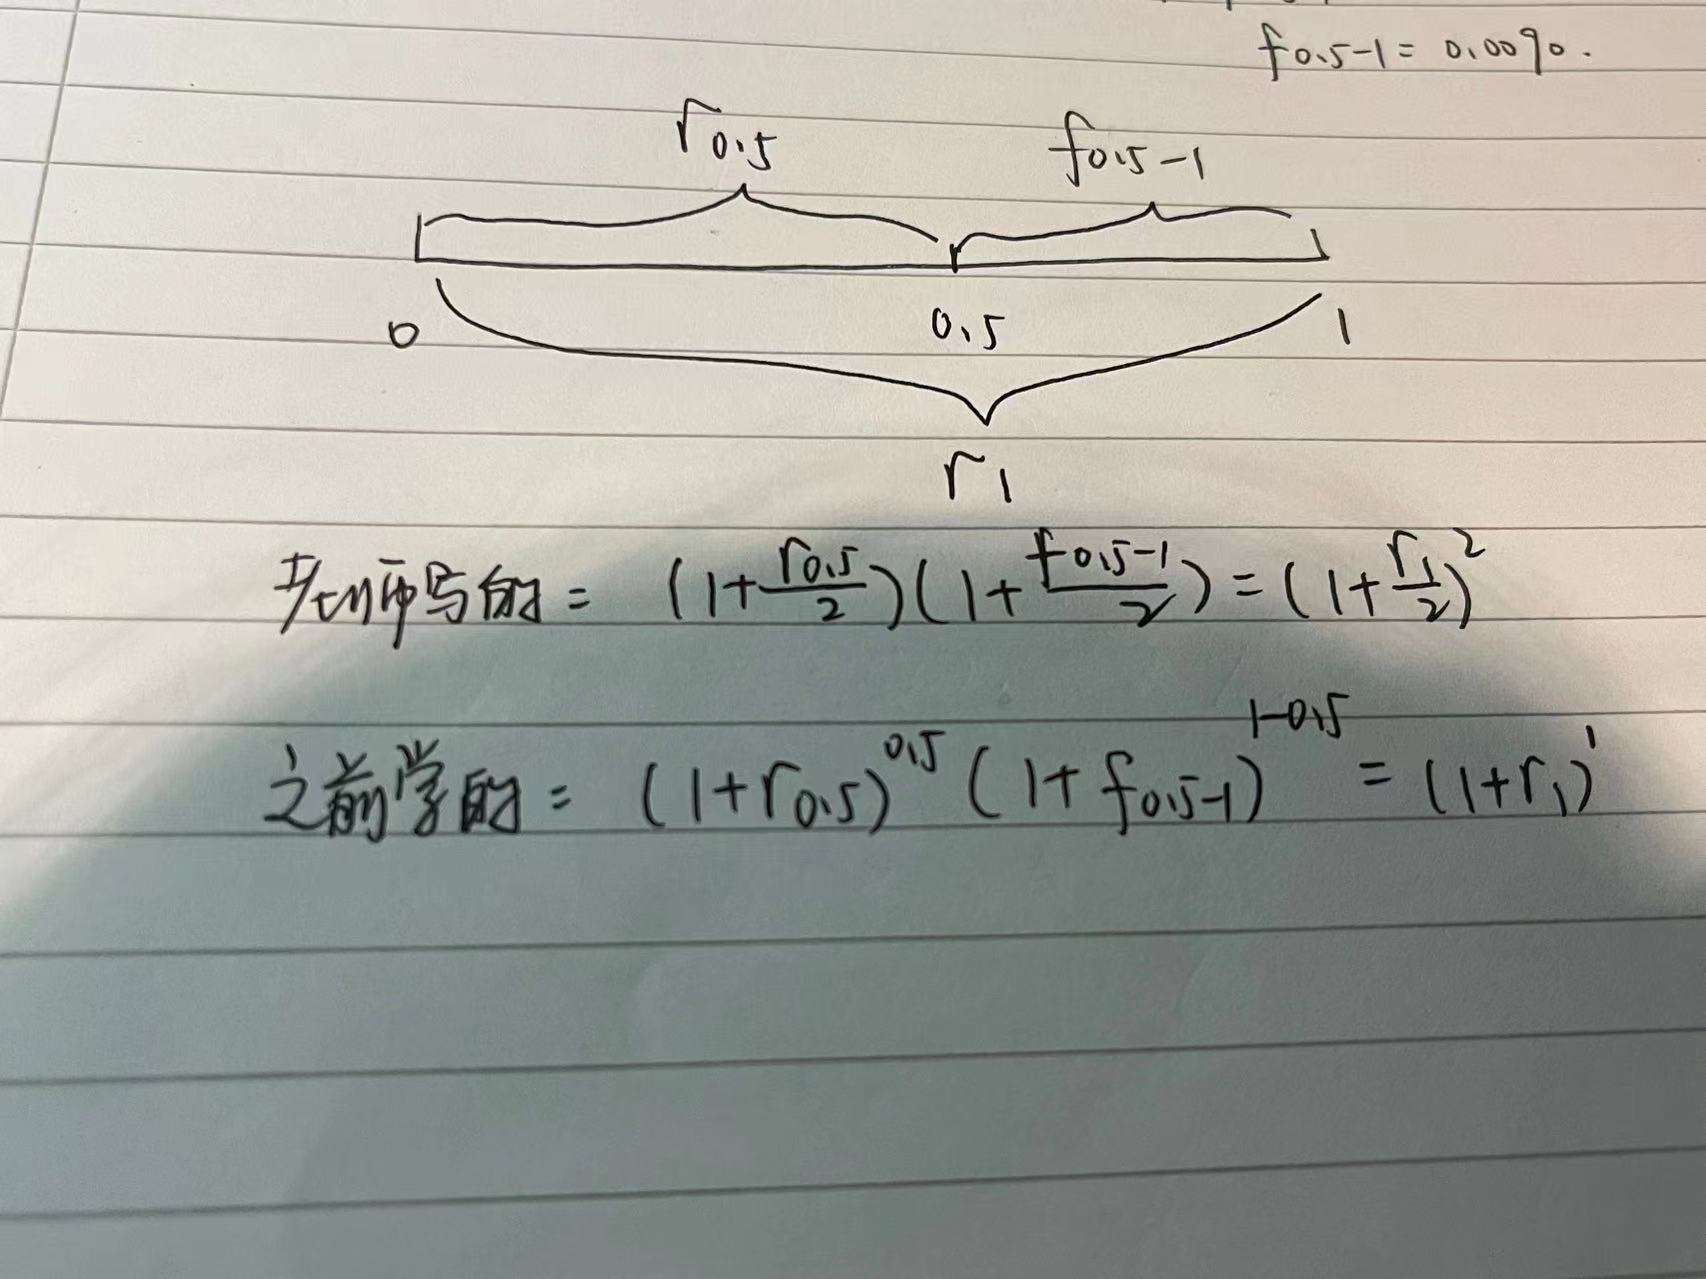 f0.5-1 = 0.0090.
r0.5 f0.5-1
0 0.5 1
r1
老师写的 = (1+r0.5/2)(1+f0.5-1/2) = (1+r1/2)²
之前学的 = (1+r0.5)^0.5 (1+f0.5-1)^1-0.5 = (1+r1)^1